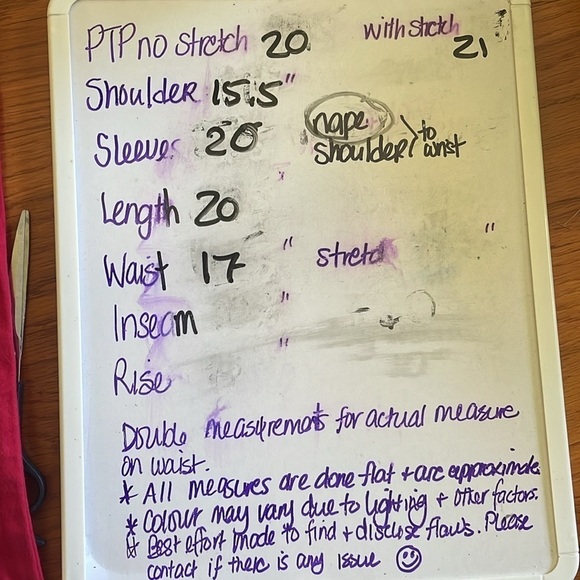 PTP no stretch 20 with stretch 21
Shoulder 15.5"
Sleeves 20 nape shoulder to wrist
Length 20 "
Waist 17 " stretch "
Inseam "
Rise "
Double measurements for actual measure
on waist.
* All measures are done flat + are approximate.
* Colour may vary due to lighting + other factors.
* Best effort made to find + disclose flaws. Please
contact if there is any issue ☺